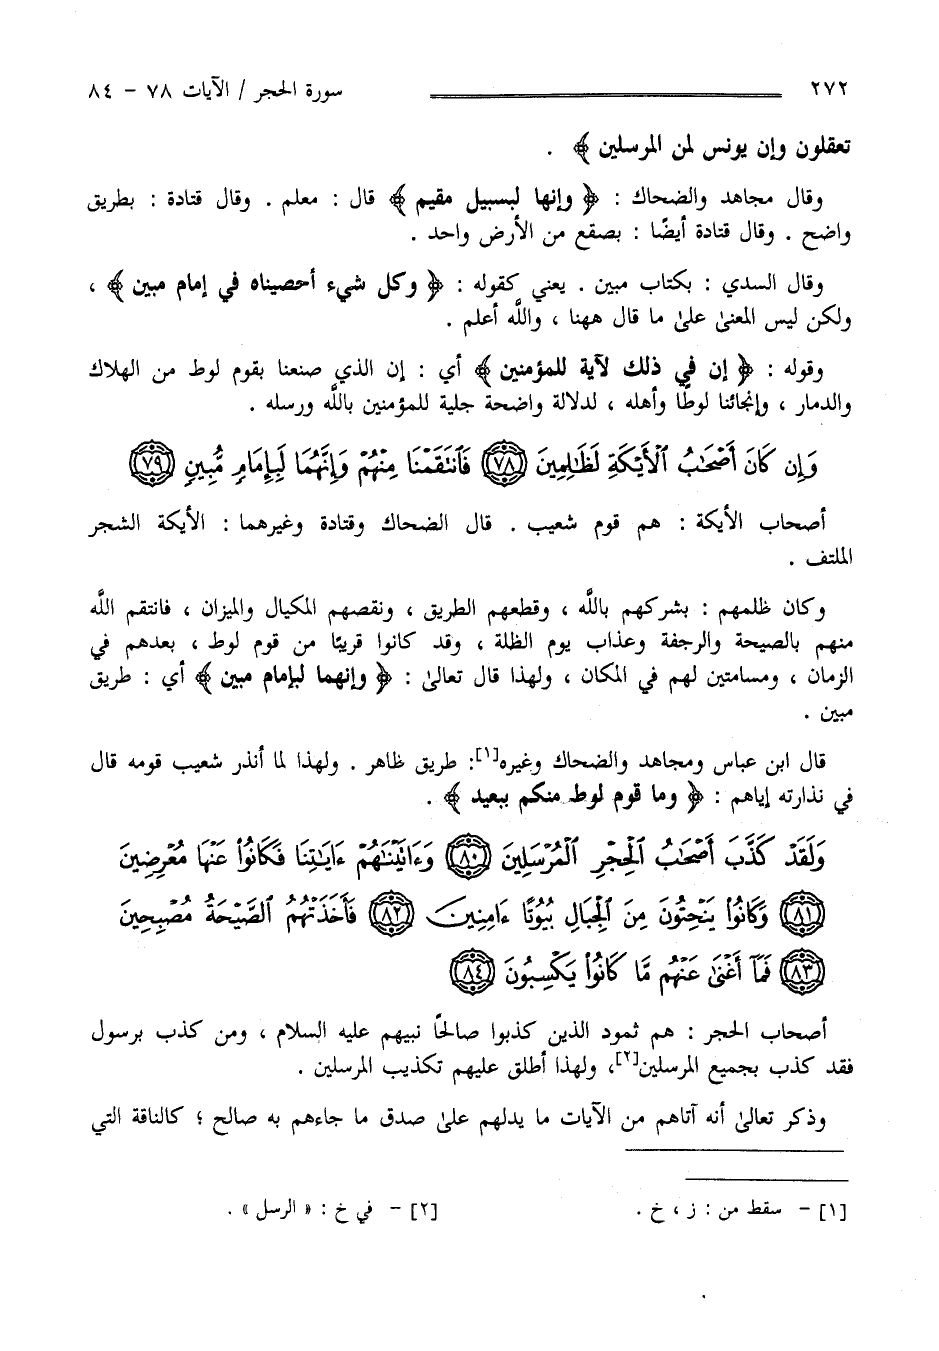 ٢٧٢ سورة الحجر / الآيات ٧٨ – ٨٤
تعقلون وإن يونس لمن المرسلين ﴾ .
وقال مجاهد والضحاك : ﴿ وإنها لبسبيل مقيم ﴾ قال : معلم . وقال قتادة : بطريق
واضح . وقال قتادة أيضًا : بصقع من الأرض واحد .
وقال السدي : بكتاب مبين . يعني كقوله : ﴿ وكل شيء أحصيناه في إمام مبين ﴾ ،
ولكن ليس المعنىٰ علىٰ ما قال ههنا ، واللَّه أعلم .
وقوله : ﴿ إن في ذلك لآية للمؤمنين ﴾ أي : إن الذي صنعنا بقوم لوط من الهلاك
والدمار ، وإنجائنا لوطًا وأهله ، لدلالة واضحة جلية للمؤمنين باللَّه ورسله .
وَإِن كَانَ أَصْحَٰبُ ٱلْأَيْكَةِ لَظَٰلِمِينَ ٧٨ فَٱنتَقَمْنَا مِنْهُمْ وَإِنَّهُمَا لَبِإِمَامٍ مُّبِينٍ ٧٩
أصحاب الأيكة : هم قوم شعيب . قال الضحاك وقتادة وغيرهما : الأيكة الشجر
الملتف .
وكان ظلمهم : بشركهم باللَّه ، وقطعهم الطريق ، ونقصهم المكيال والميزان ، فانتقم اللَّه
منهم بالصيحة والرجفة وعذاب يوم الظلة ، وقد كانوا قريبًا من قوم لوط ، بعدهم في
الزمان ، ومسامتين لهم في المكان ، ولهذا قال تعالىٰ : ﴿ وإنهما لبإمام مبين ﴾ أي : طريق
مبين .
قال ابن عباس ومجاهد والضحاك وغيره[١]: طريق ظاهر . ولهذا لما أنذر شعيب قومه قال
في نذارته إياهم : ﴿ وما قوم لوط منكم ببعيد ﴾ .
وَلَقَدْ كَذَّبَ أَصْحَٰبُ ٱلْحِجْرِ ٱلْمُرْسَلِينَ ٨٠ وَءَاتَيْنَٰهُمْ ءَايَٰتِنَا فَكَانُوا۟ عَنْهَا مُعْرِضِينَ
٨١ وَكَانُوا۟ يَنْحِتُونَ مِنَ ٱلْجِبَالِ بُيُوتًا ءَامِنِينَ ٨٢ فَأَخَذَتْهُمُ ٱلصَّيْحَةُ مُصْبِحِينَ
٨٣ فَمَآ أَغْنَىٰ عَنْهُم مَّا كَانُوا۟ يَكْسِبُونَ ٨٤
أصحاب الحجر : هم ثمود الذين كذبوا صالحًا نبيهم عليه السلام ، ومن كذب برسول
فقد كذب بجميع المرسلين[٢]، ولهذا أطلق عليهم تكذيب المرسلين .
وذكر تعالىٰ أنه آتاهم من الآيات ما يدلهم علىٰ صدق ما جاءهم به صالح ؛ كالناقة التي
[١] – سقط من : ز ، خ . [٢] – في خ : « الرسل » .